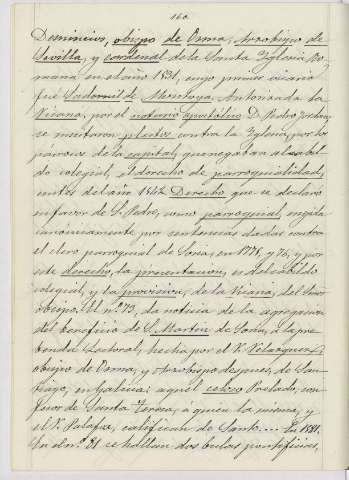 160.
Dominicus, obispo de Osma, Arzobispo de
Sevilla, y cardenal de la Santa Yglesia Ro-
mana en el año 1531, cuyo primer vicario
fué Sadornil de Montoya. Autorizada la
Vicaria, por el notario apostolico D. Pedro
se suscitaron pleitos contra la Yglesia, por los
párrocos de la capital, que negaban al cabil-
do colegial, el derecho de parroquialidad,
antes del año 1542. Derecho que se declaró
en favor de S. Pedro, como parroquial, erigida
canonicamente por sentencias dadas contra
el clero parroquial de Soria, en 1775, y 76, y por
este derecho, la presentacion, es del cabildo
colegial, y la provision, de la Vicaria, del Sor.
obispo. El nº 73, da noticia de la agregacion
del beneficio de S. Martin de Soria, á la pre-
benda Lectoral, hecha por el V. Velazquez,
obispo de Osma, y Arzobispo despues, de San-
tiago, en Galicia; aquel celoso Prelado, con-
fesor de Santa Teresa, á quien la misma, y
el V. Palafox, califican de Santo.... En 1581.
En el nº 81 se hallan dos bulas pontificias,